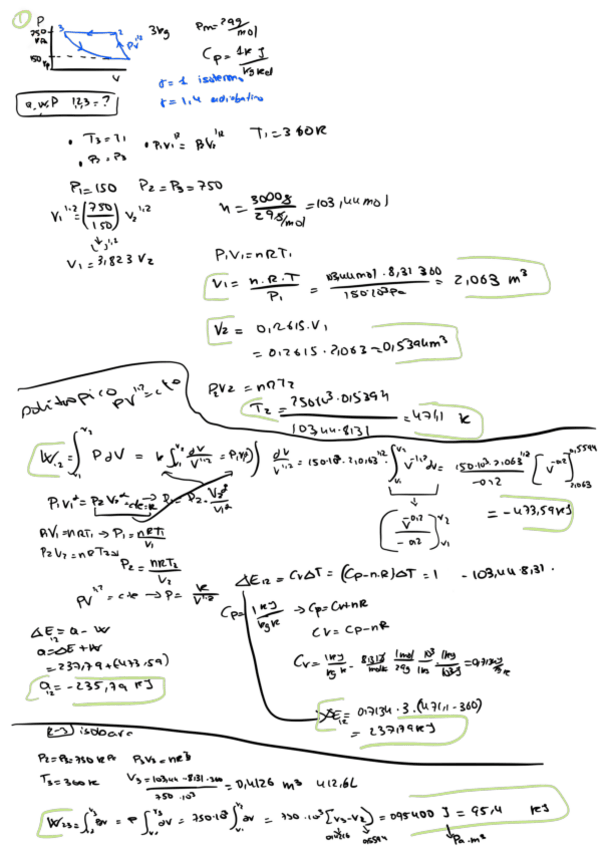 ①
P
750 kPa
3
2
3kg
Pm = 29 g/mol
PV^1,2
150 kPa
V
Cp = 1 kJ / kg ked
γ = 1 isoterm
γ = 1,4 adiabatico
Q, W, P 1,2,3 = ?
• T3 = T1 • P1V1^1,2 = P2V2^1,2 T1 = 360K
• P2 = P3
P1 = 150 P2 = P3 = 750
V1^1,2 = (750/150) V2^1,2
n = 3000g / 29 g/mol = 103,44 mol
V1 = 3,823 V2
P1V1 = nRT1
V1 = n.R.T / P1 = 103,44mol . 8,31 360 / 150.10³Pa = 2,063 m³
V2 = 0,2615.V1
= 0,2615 . 2,063 = 0,5394m³
politropico PV^1,2 = cto
P2V2 = nRT2
T2 = 750.10³ . 0,5394 / 103,44.8,31 = 471,1 K
W12 = ∫V1^V2 P dV = k ∫V1^V2 dV/V^1,2 = P1V1^1,2 ∫ dV/V^1,2 = 150.10³ . 2,063^1,2 . ∫V1^V2 V^-1,2 dV = 150.10³ . 2,063^1,2 / -0,2 [V^-0,2] 0,5594 2,063
P1V1^α = P2V2^α = cte = k → P1 = P2 . V2^α / V1^α
[V^-0,2 / -0,2] V2 V1
= -473,59 kJ
P1V1 = nRT1 → P1 = nRT1 / V1
P2V2 = nRT2 →
P2 = nRT2 / V2
PV^1,2 = cte → P = k / V^1,2
ΔE12 = CvΔT = (Cp - n.R)ΔT = 1 - 103,44.8,31.
Cp = 1 kJ / kg k → Cp = Cv + nR
Cv = Cp - nR
ΔE12 = Q - W
Q = ΔE + W
= 237,79 + (-473,59)
Q12 = -235,79 kJ
Cv = 1kJ / kg k - 8,31J / mol k 1mol / 29g 10³g / 1kg 1kJ / 10³J = 0,7134 kJ / kg k
ΔE12 = 0,7134 . 3 . (471,1 - 360)
= 237,79 kJ
2-3) isobara
P2 = P3 = 750 kPa P3V3 = nRT3
T3 = 360 k V3 = 103,44 . 8,31 . 360 / 750 . 10³ = 0,4126 m³ 412,6L
W23 = ∫V2^V3 dV = P ∫V2^V3 dV = 750.10³ ∫V2^V3 dV = 750 . 10³ [V3 - V2] = 095400 J = 95,4 kJ
0,4126 0,5394 Pa . m³